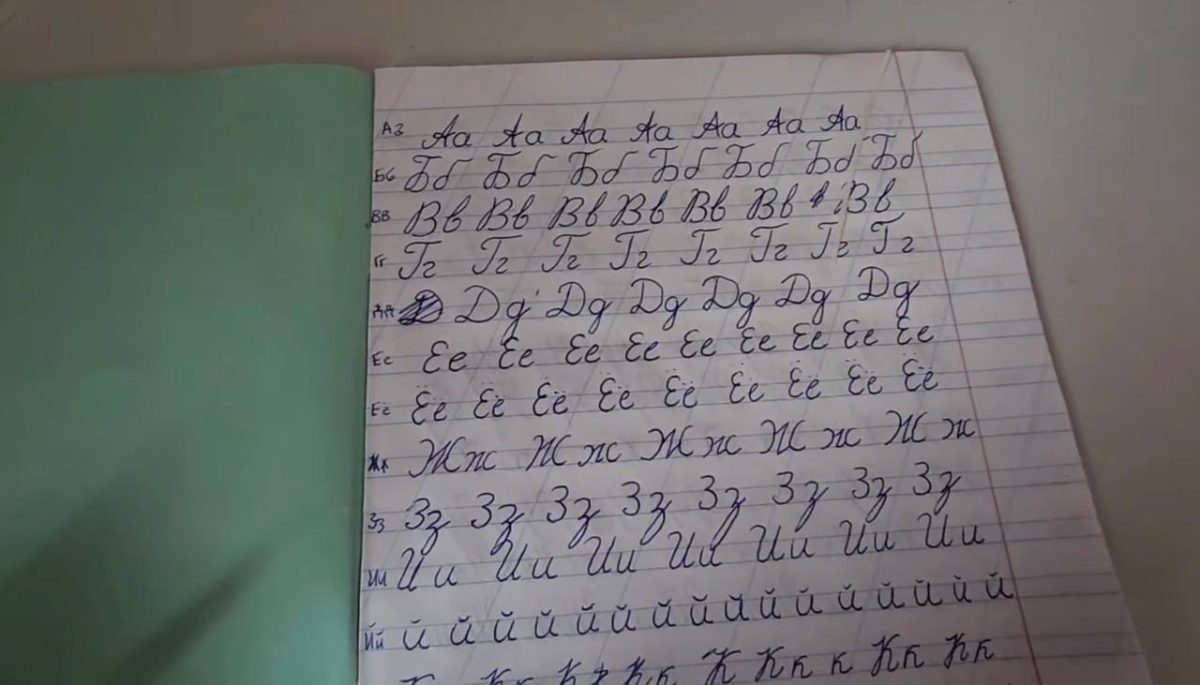 Аа Аа Аа Аа Аа Аа Аа Аа
Бб Бб Бб Бб Бб Бб Бб Бб
Вв Вв Вв Вв Вв Вв Вв Вв
Гг Гг Гг Гг Гг Гг Гг Гг Гг
Дд Дд Дд Дд Дд Дд Дд
Ее Ее Ее Ее Ее Ее Ее Ее Ее Ее
Её Её Её Её Её Её Её Её Её Её
Жж Жж Жж Жж Жж Жж
Зз Зз Зз Зз Зз Зз Зз Зз Зз
Ии Ии Ии Ии Ии Ии Ии Ии
Йй й й й й й й й й й й й й й й й
Кк Кк Кк К Кк к Кк Кк